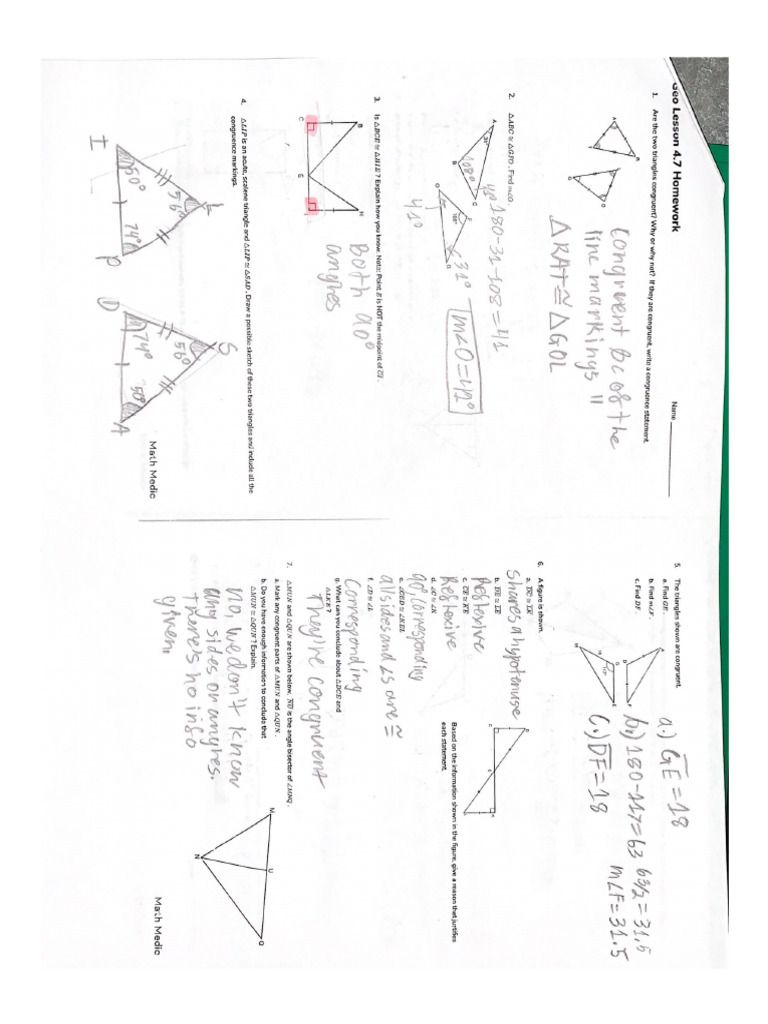 Geo Lesson 4.7 Homework
Name
1. Are the two triangles congruent? Why or why not? If they are congruent, write a congruence statement.
Congruent bc of the
line markings "
△RAT ≅ △GOL
2. △ABC ≅ △GFO. Find m∠O.
A
B
C
31°
108°
41°
O
F
G
108°
31°
41°
180-31-108=41
m∠O=42°
3. Is △BCE ≅ △HIE? Explain how you know. Note: Point E is NOT the midpoint of CI.
B
H
C
E
Both 90°
angles
4. △LIP is an acute, scalene triangle and △LIP ≅ △SAD. Draw a possible sketch of these two triangles and include all the
congruence markings.
L
56°
50°
74°
I
P
S
56°
74°
50°
D
A
Math Medic
5. The triangles shown are congruent.
a. Find GE.
b. Find m∠F.
c. Find DF.
a.) GE = 18
b.) 180-117=63 63/2=31.5
m∠F=31.5
c.) DF=18
6. A figure is shown.
Based on the information shown in the figure, give a reason that justifies
each statement.
a. DC ≅ LK
Shares a hypotenuse
b. DE ≅ LE
Reflexive
c. CE ≅ KE
Reflexive
d. ∠C ≅ ∠K
90°, corresponding
e. ∠CED ≅ ∠KEL
all sides and ∠s are ≅
f. ∠D ≅ ∠L
Corresponding
g. What can you conclude about △DCE and
△LKE?
They're congruent
7. △MUN and △QUN are shown below. NU is the angle bisector of ∠MNQ.
a. Mark any congruent parts of △MUN and △QUN.
b. Do you have enough information to conclude that
△MUN ≅ △QUN? Explain.
No, we don't know
any sides or angles.
there's no info
given.
M
U
N
Q
Math Medic